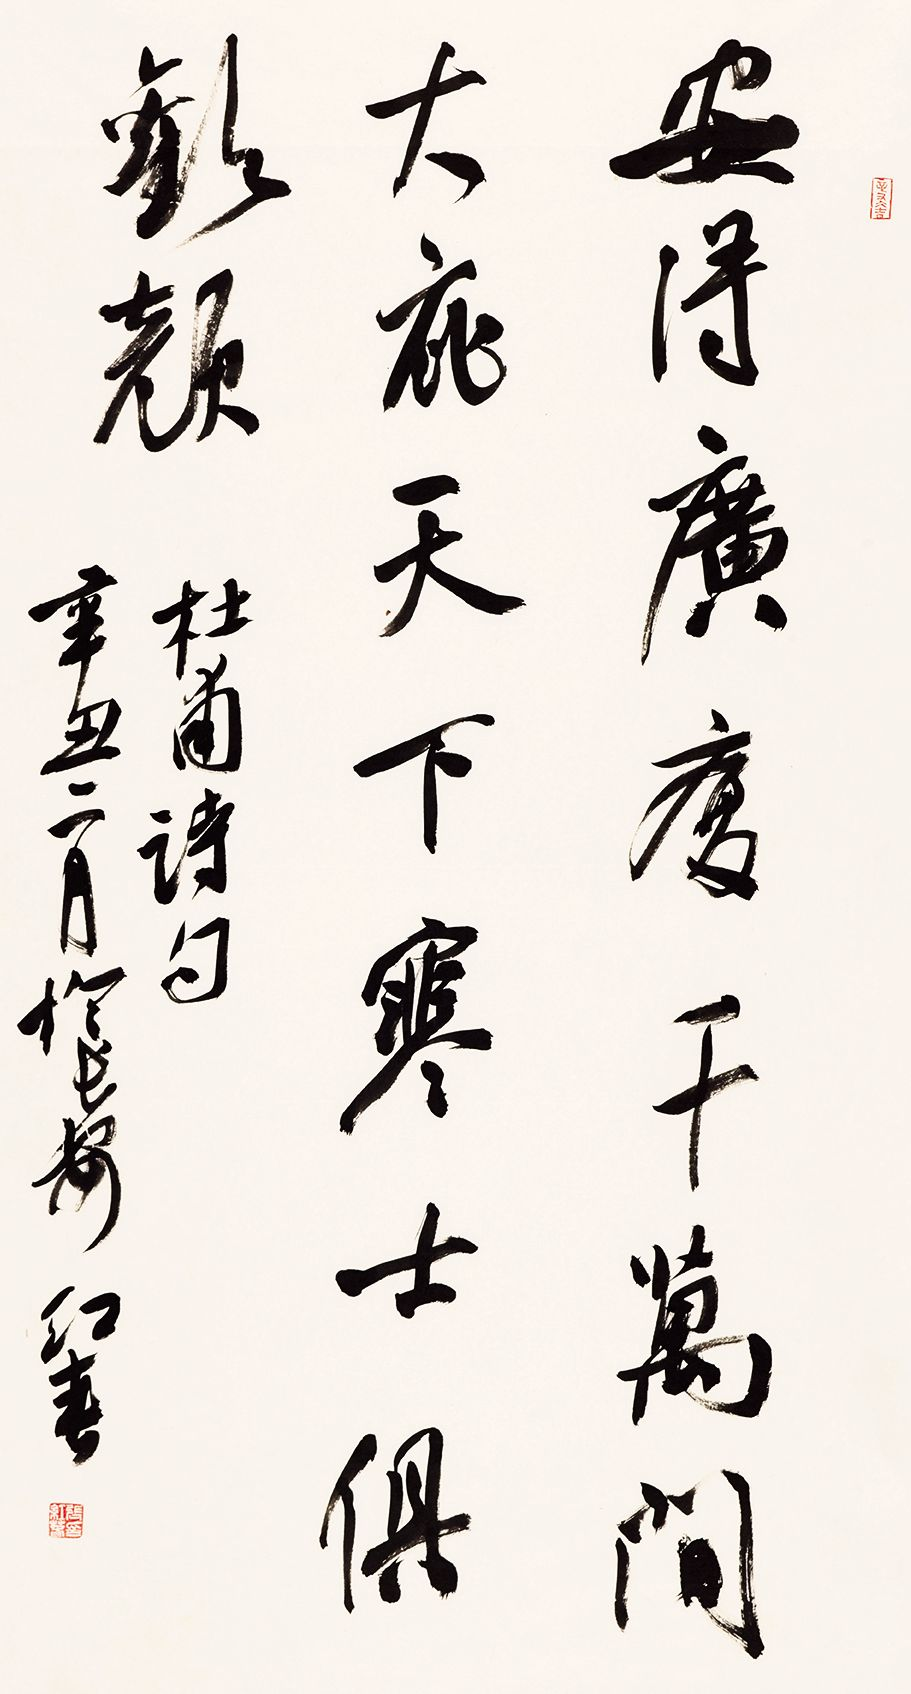 安得廣廈千萬間
大庇天下寒士俱
歡顏
杜甫詩句
辛丑二月於長安 紅春